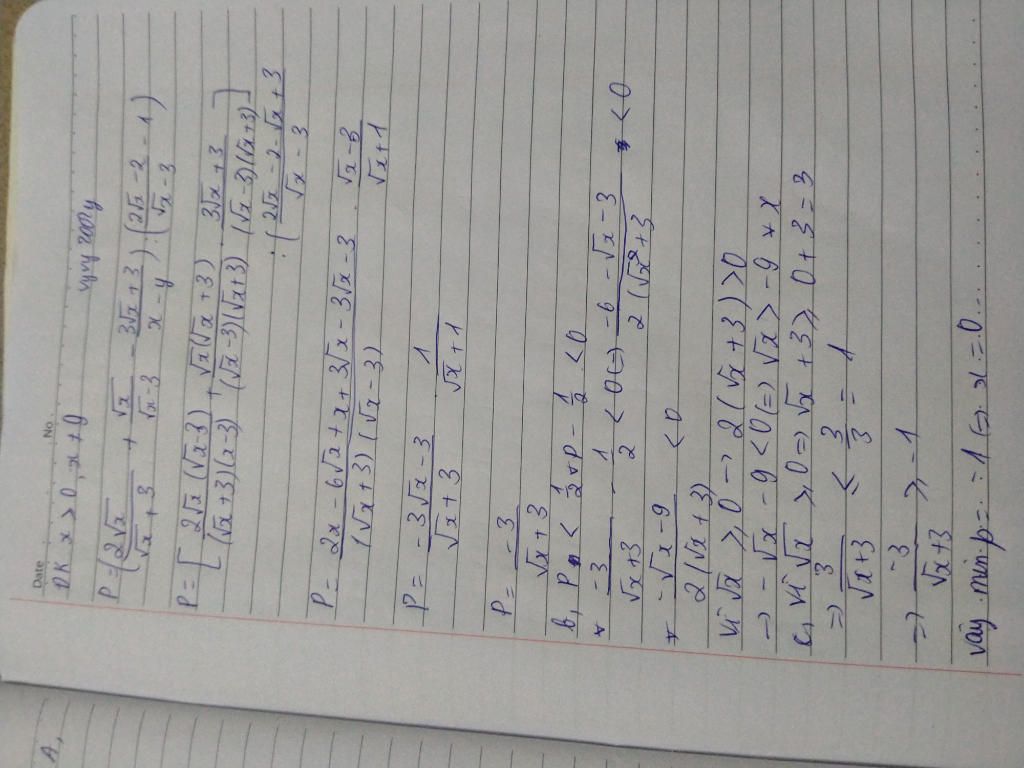 Date No.
ĐK x > 0, x ≠ 9
P = (2√x/√x+3 + √x/√x-3 - 3√x+3/x-y) : (2√x-2/√x-3 - 1)
P = [2√x(√x-3)/(√x+3)(x-3) + √x(√x+3)/(√x-3)(√x+3) . 3√x+3/(√x-3)(√x+3)]
: (2√x-2-√x+3/√x-3
P = 2x-6√x+x+3√x-3√x-3/(√x+3)(√x-3) . √x-3/√x+1
P = -3√x-3/√x+3 . 1/√x+1
P = -3/√x+3
b, P < 1/2 P - 1/2 < 0
* -3/√x+3 - 1/2 < 0 (=) -6-√x-3/2(√x+3 < 0
* -√x-9/2(√x+3) < 0
Vì √x ≥ 0 → 2(√x+3) > 0
→ -√x-9 < 0 (=) √x > -9 * x
c, Vì √x ≥ 0 => √x+3 ≥ 0+3 = 3
=) 3/√x+3 ≤ 3/3 = 1
=) -3/√x+3 ≥ -1
Vậy min p = -1 (=) x = 0
A,